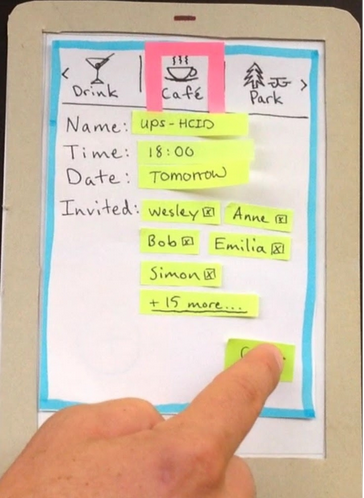 < Drink Café Park >
Name: ups-HCID
Time: 18:00
Date: Tomorrow
Invited: Wesley Anne
Bob Emilia
Simon
+ 15 more...